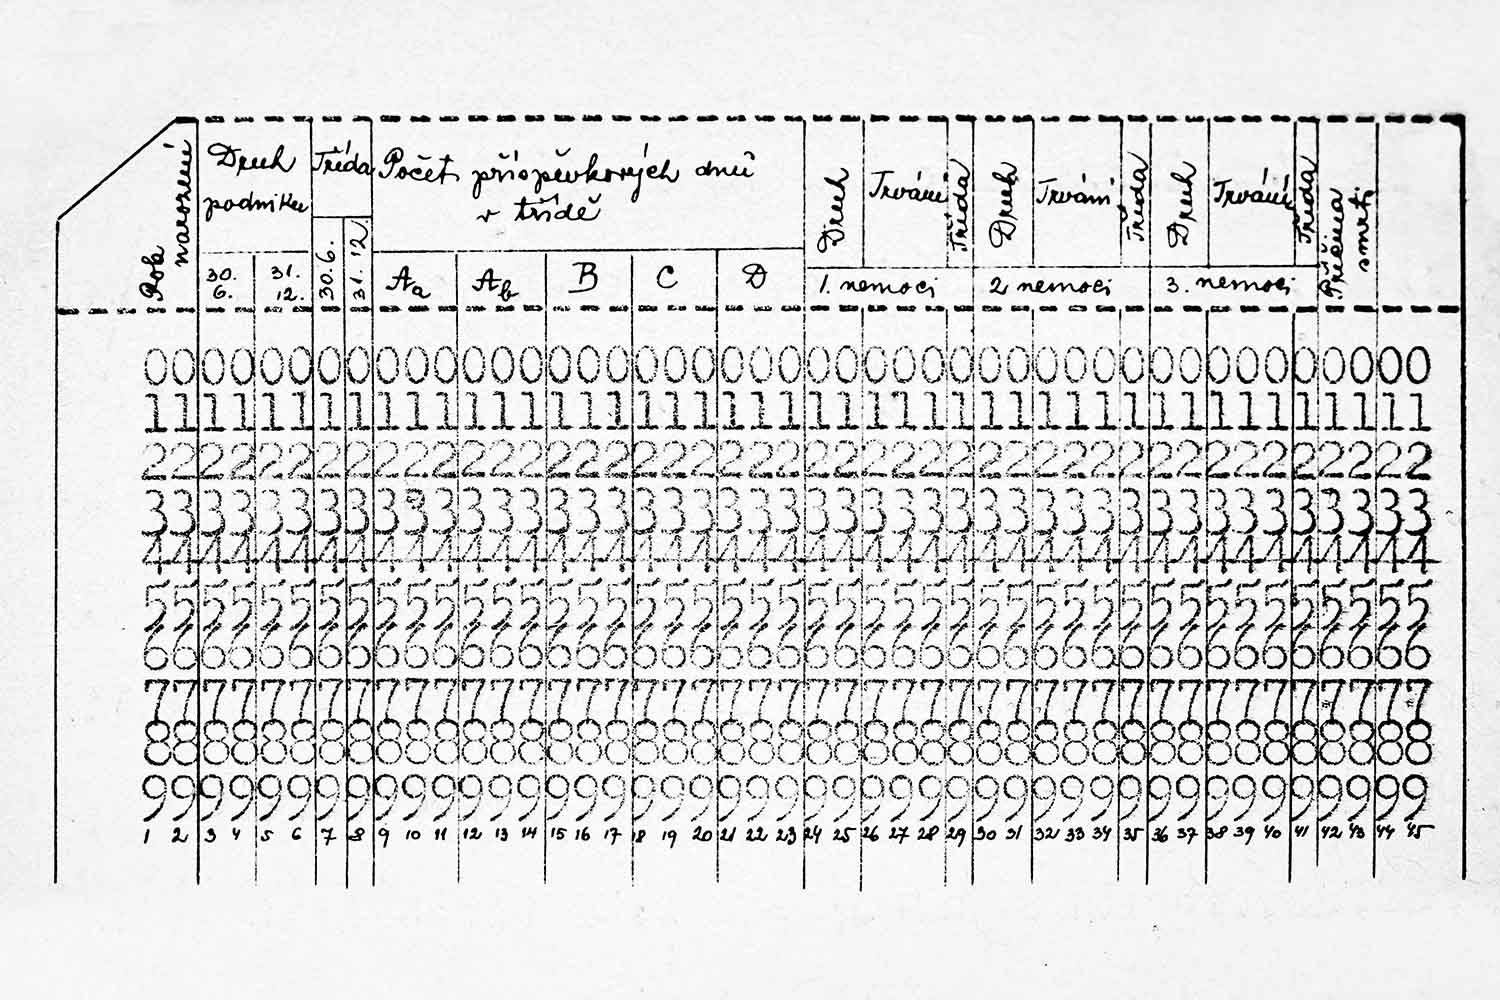 Rok narození
Druh podniku
Třída
Počet příspěvkových dnů
v třídě
Druh
Trvání
Třída
Druh
Trvání
Třída
Druh
Trvání
Třída
Příčina smrti
30. 6.
31. 12.
30. 6.
31. 12
Aa
Ab
B
C
D
1. nemoci
2 nemoci
3. nemoci
000000000000000000000000000000000000000000000
111111111111111111111111111111111111111111111
222222222222222222222222222222222222222222222
333333333333333333333333333333333333333333333
444444444444444444444444444444444444444444444
555555555555555555555555555555555555555555555
666666666666666666666666666666666666666666666
777777777777777777777777777777777777777777777
888888888888888888888888888888888888888888888
999999999999999999999999999999999999999999999
1 2 3 4 5 6 7 8 9 10 11 12 13 14 15 16 17 18 19 20 21 22 23 24 25 26 27 28 29 30 31 32 33 34 35 36 37 38 39 40 41 42 43 44 45